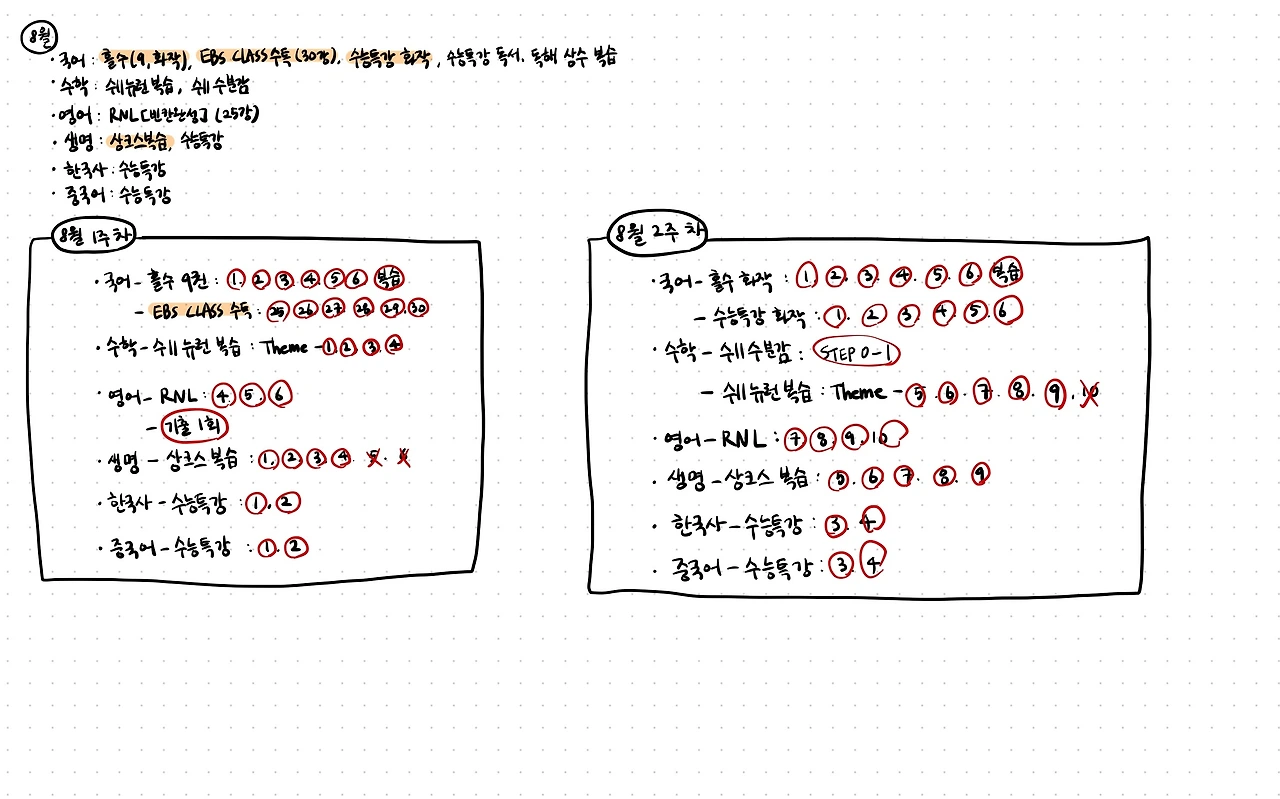 8월
· 국어 : 홀수(9, 화작), EBS CLASS 수특(30강), 수능특강 화작, 수능특강 독서, 독해 상수 복습
· 수학 : 수II 뉴런 복습, 수II 수분감
· 영어 : RNL [빈칸완성] (25강)
· 생명 : 상크스복습, 수능특강
· 한국사 : 수능특강
· 중국어 : 수능특강
8월 1주차
· 국어 - 홀수 9권 : 1. 2 3 4. 5 6 복습
- EBS CLASS 수특 : 25, 26 27 28 29. 30
· 수학 - 수II 뉴런 복습 : Theme - 1. 2. 3 4
· 영어 - RNL : 4. 5. 6
- 기출 1회
· 생명 - 상크스 복습 : 1. 2. 3. 4. 5. 6
· 한국사 - 수능특강 : 1. 2
· 중국어 - 수능특강 : 1. 2
8월 2주차
· 국어 - 홀수 화작 : 1. 2. 3. 4. 5. 6. 복습
- 수능특강 화작 : 1. 2 3 4. 5. 6
· 수학 - 수II 수분감 : STEP 0-1
- 수II 뉴런 복습 : Theme - 5. 6. 7. 8. 9. 10
· 영어 - RNL : 7 8. 9. 10
· 생명 - 상크스 복습 : 5. 6. 7. 8. 9
· 한국사 - 수능특강 : 3. 4
· 중국어 - 수능특강 : 3. 4